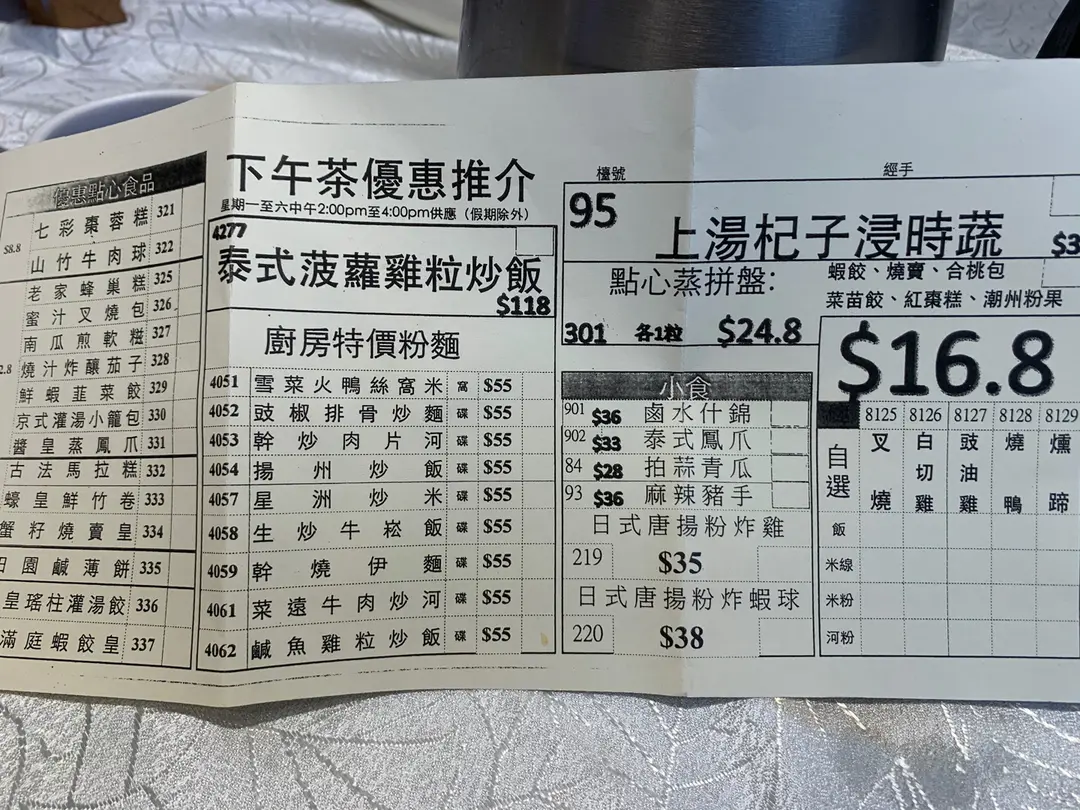 優惠點心食品
$8.8
七彩棗蓉糕 321
山竹牛肉球 322
老家蜂巢糕 325
蜜汁叉燒包 326
南瓜煎軟糍 327
2.8 燒汁炸釀茄子 328
鮮蝦韮菜餃 329
京式灌湯小籠包 330
醬皇蒸鳳爪 331
古法馬拉糕 332
蠔皇鮮竹卷 333
蟹籽燒賣皇 334
田園鹹薄餅 335
皇瑤柱灌湯餃 336
滿庭蝦餃皇 337
下午茶優惠推介
星期一至六中午2:00pm至4:00pm供應（假期除外）
4277
泰式菠蘿雞粒炒飯
$118
廚房特價粉麵
4051 雪菜火鴨絲窩米 窩 $55
4052 豉椒排骨炒麵 碟 $55
4053 幹炒肉片河 碟 $55
4054 揚州炒飯 碟 $55
4057 星洲炒米 碟 $55
4058 生炒牛崧飯 碟 $55
4059 幹燒伊麵 碟 $55
4061 菜遠牛肉炒河 碟 $55
4062 鹹魚雞粒炒飯 碟 $55
檯號 經手
95 上湯杞子浸時蔬 $3
點心蒸拼盤: 蝦餃、燒賣、合桃包
菜苗餃、紅棗糕、潮州粉果
301 各1粒 $24.8
小食
901 $36 鹵水什錦
902 $33 泰式鳳爪
84 $28 拍蒜青瓜
93 $36 麻辣豬手
日式唐揚粉炸雞
219 $35
日式唐揚粉炸蝦球
220 $38
$16.8
8125 8126 8127 8128 8129
自選 叉燒 白切雞 豉油雞 燒鴨 燻蹄
飯
米線
米粉
河粉